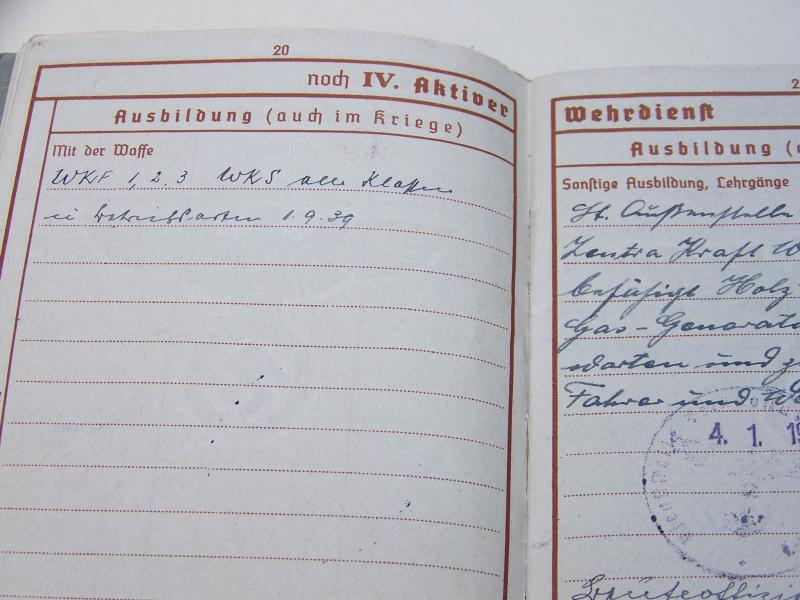 20
noch IV. Aktiver
Ausbildung (auch im Kriege)
Mit der Waffe
WKF 1, 2. 3 WKS alle Klassen
1.9.39
2
Wehrdienst
Ausbildung (
Sonstige Ausbildung, Lehrgänge
St. Außenstelle
Zentra Kraft W
befähigt Holz
Gas-Generato
warten und z
Fahrer und Wa
4. 1. 19